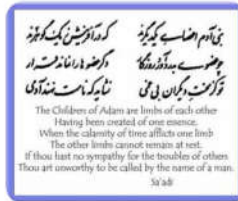 بنی آدم اعضای یکدیگرند
که در آفرینش ز یک گوهرند
چو عضوی بدرد آورد روزگار
دگر عضوها را نماند قرار
تو کز محنت دیگران بی غمی
نشاید که نامت نهند آدمی
The Children of Adam are limbs of each other
Having been created of one essence.
When the calamity of time afflicts one limb
The other limbs cannot remain at rest.
If thou hast no sympathy for the troubles of others
Thou art unworthy to be called by the name of a man.
Sa'adi